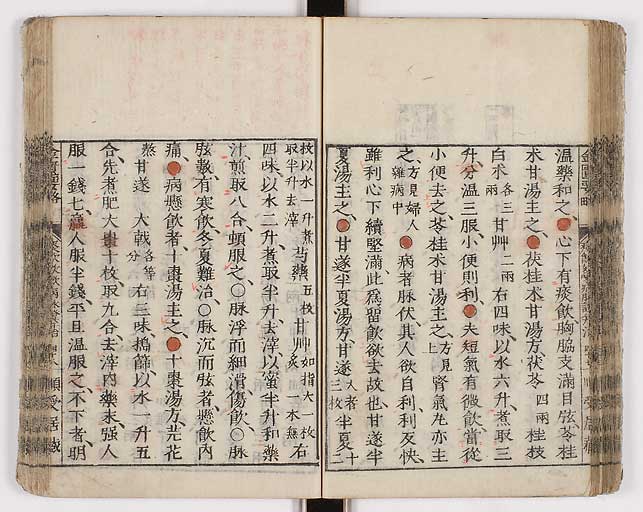 温藥和之●心下有痰飲胸脇支滿目眩苓桂
朮甘湯主之●茯桂朮甘湯方茯苓四兩桂枝
白朮各三兩甘艸二兩右四味以水六升煮取三
升分温三服小便則利●夫短氣有微飲當從
小便去之苓桂朮甘湯主之方見上腎氣丸亦主
之方見婦人雜病中●病者脉伏其人欲自利利反快
雖利心下續堅滿此爲留飲欲去故也甘遂半
夏湯主之●甘遂半夏湯方甘遂大者三枚半夏十二
枚以水一升煮取半升去滓芍藥五枚甘艸如指大一枚炙一本無右
四味以水二升煮取半升去滓以蜜半升和藥
汁煎取八合頓服之〇脉浮而細滑傷飲〇脉
弦數有寒飲冬夏難治〇脉沉而弦者懸飲內
痛●病懸飲者十棗湯主之●十棗湯方芫花
熬甘遂 大戟各等分右三味搗篩以水一升五
合先煮肥大棗十枚取九合去滓內藥末强人
服一錢七羸人服半錢平旦温服之不下者明
金匱要略